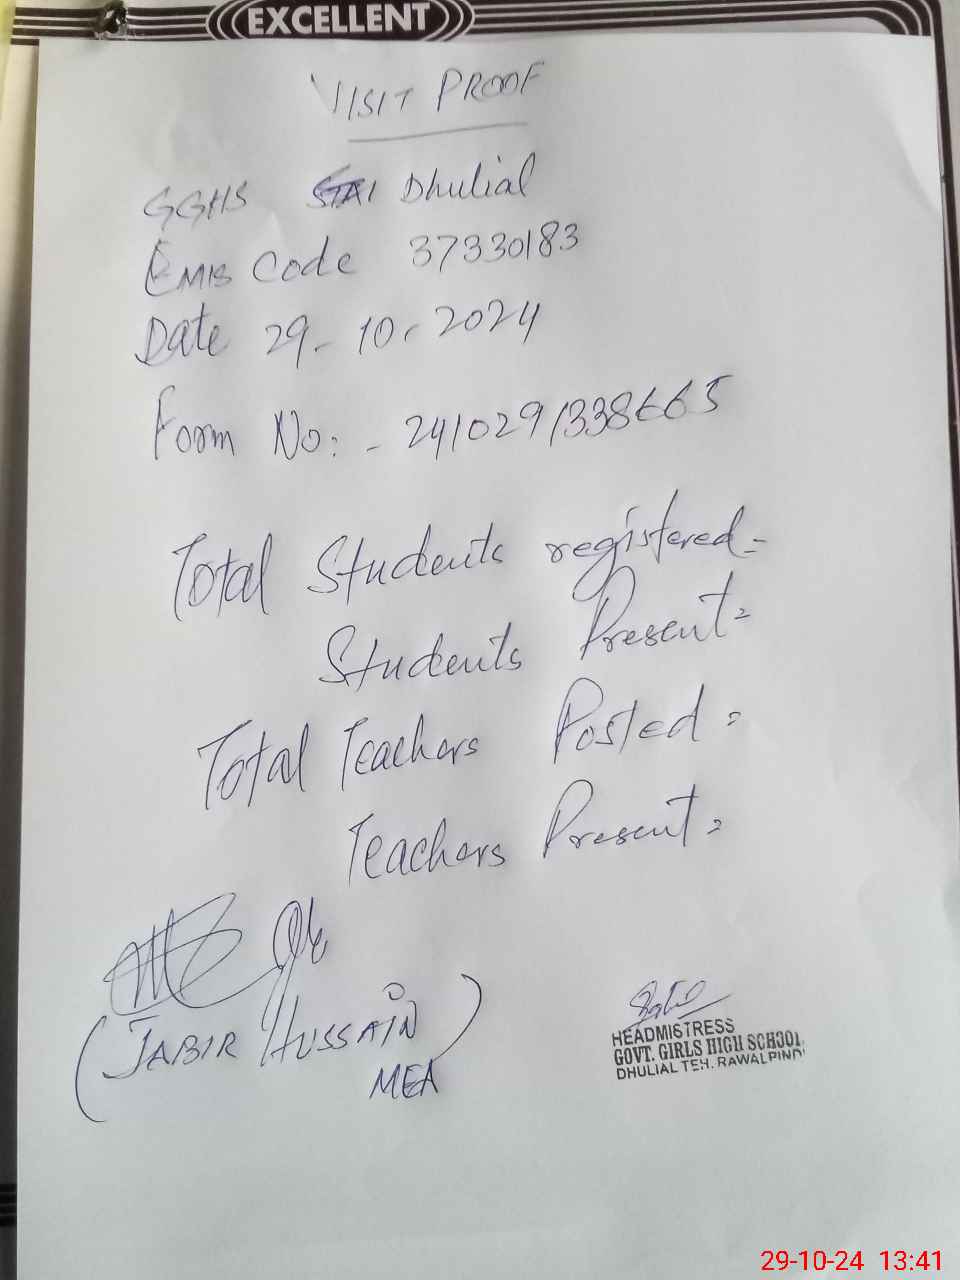 EXCELLENT
VISIT PROOF
GGHS Dhulial
EMIS Code 37330183
Date 29-10-2024
Form No:- 2410291338665
Total Students registered =
Students Present =
Total Teachers Posted =
Teachers Present =
(JABIR HUSSAIN)
MEA
HEADMISTRESS
GOVT. GIRLS HIGH SCHOOL
DHULIAL TEH. RAWALPINDI
29-10-24 13:41